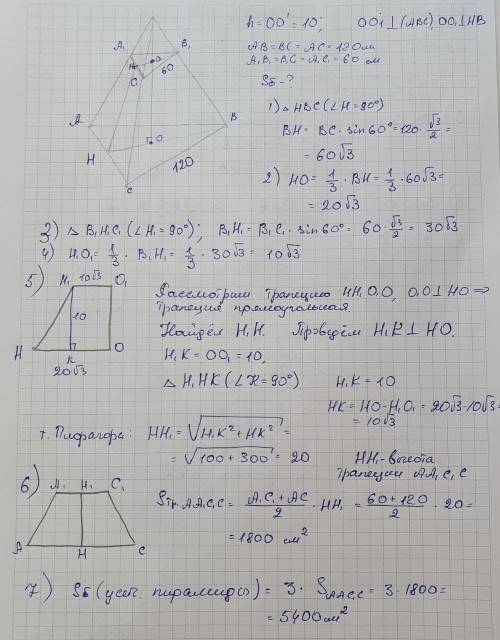 h = OO' = 10; OO1 ⊥ (ABC), OO1 ⊥ HB
AB = BC = AC = 120 см
A1B1 = B1C1 = A1C1 = 60 см
Sб - ?
1) △ HBC (∠H = 90°)
BH = BC · sin 60° = 120 · √3/2 =
= 60√3
2) HO = 1/3 · BH = 1/3 · 60√3 =
= 20√3
A1
B1
O
C
60
A
B
H
O
C
120
3) △ B1H1C1 (∠H1 = 90°); B1H1 = B1C1 · sin 60° = 60 · √3/2 = 30√3
4) H1O1 = 1/3 · B1H1 = 1/3 · 30√3 = 10√3
5)
H1 10√3 O1
10
H K O
20√3
Рассмотрим трапецию HH1O1O, O1O ⊥ HO ⇒
трапеция прямоугольная.
Найдём H1H. Проведём H1K ⊥ HO.
H1K = OO1 = 10,
△ H1HK (∠K = 90°) H1K = 10
HK = HO - H1O1 = 20√3 - 10√3 =
= 10√3
т. Пифагора: HH1 = √H1K² + HK² =
= √100 + 300 = 20
HH1 - высота
трапеции AA1C1C
6)
A1 H1 C1
A H C
Sтр. AA1C1C = A1C1 + AC/2 · HH1 = 60 + 120/2 · 20 =
= 1800 см²
7) Sб (усеч. пирамиды) = 3 · SAA1C1C = 3 · 1800 =
= 5400 см²